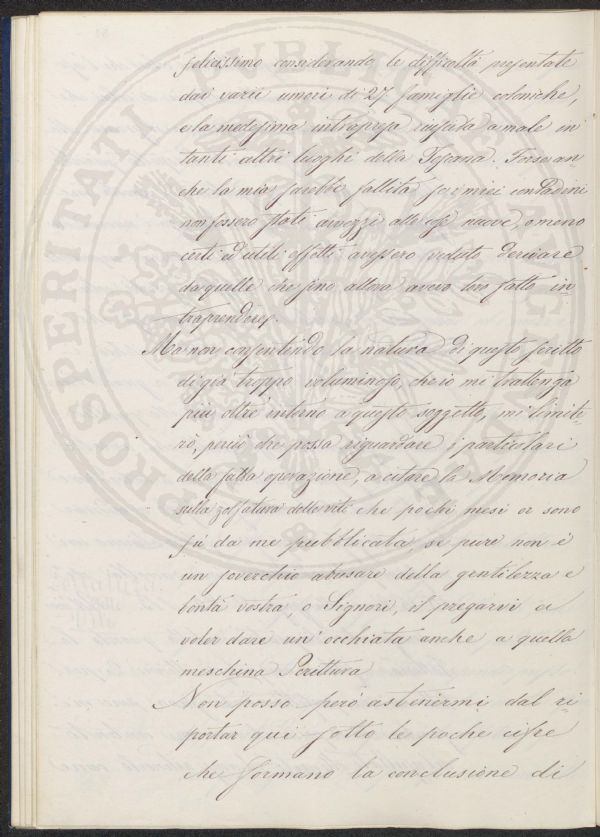 felicissimo considerando le difficoltà presentate
dai varii umori di 27 famiglie coloniche,
e la medesima intrapresa riuscita a male in
tanti altri luoghi della Toscana. Forse an
che la mia sarebbe fallita se i miei contadini
non fossero stati avvezzi alle cose nuove, o meno
certi ed utili effetti avessero veduto derivare
da quelle che sino allora avevo loro fatto in
traprendere.
Ma non consentendo la natura di questo scritto
di già troppo voluminoso, che io mi trattenga
più oltre intorno a questo soggetto, mi limite-
rò, perciò che possa riguardare i particolari
della fatta operazione, a citare la Memoria
sulla zolfatura delle viti che pochi mesi or sono
fù da me pubblicata se pure non è
un soverchio abusare della gentilezza e
bontà vostra, o Signori, il pregarvi a
voler dare un'occhiata anche a quella
meschina Scrittura
Non posso però astenermi dal ri
portar qui sotto le poche cifre
che formano la conclusione di
PUBLICAE
PROSPERITATI